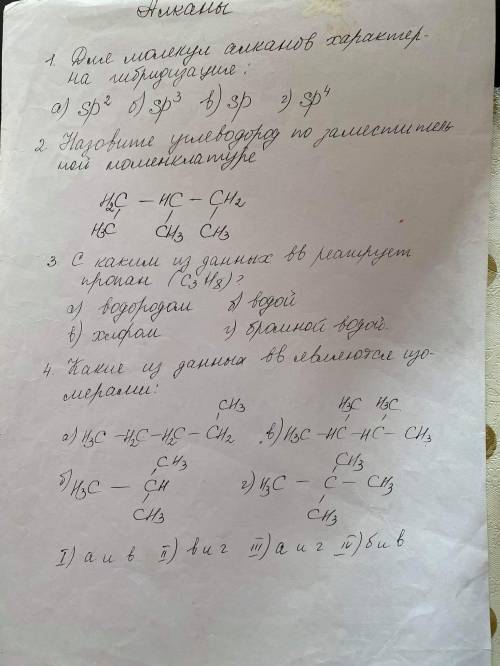 Алканы
1. Для молекул алканов характер-
на гибридизация:
а) sp² б) sp³ в) sp г) sp⁴
2. Назовите углеводород по заместитель
ной номенклатуре
H₂C – HC – CH₂
H₃C CH₃ CH₃
3. С каким из данных вв реагирует
пропан (C₃H₈)?
а) водородом б) водой
в) хлором г) бромной водой
4. Какие из данных вв являются изо-
мерами:
CH₃ H₃C H₃C
а) H₃C – H₂C – H₂C – CH₂ в) H₃C – HC – HC – CH₃
CH₃ CH₃
б) H₃C – CH г) H₃C – C – CH₃
CH₃ CH₃
I) а и в II) в и г III) а и г IV) б и в